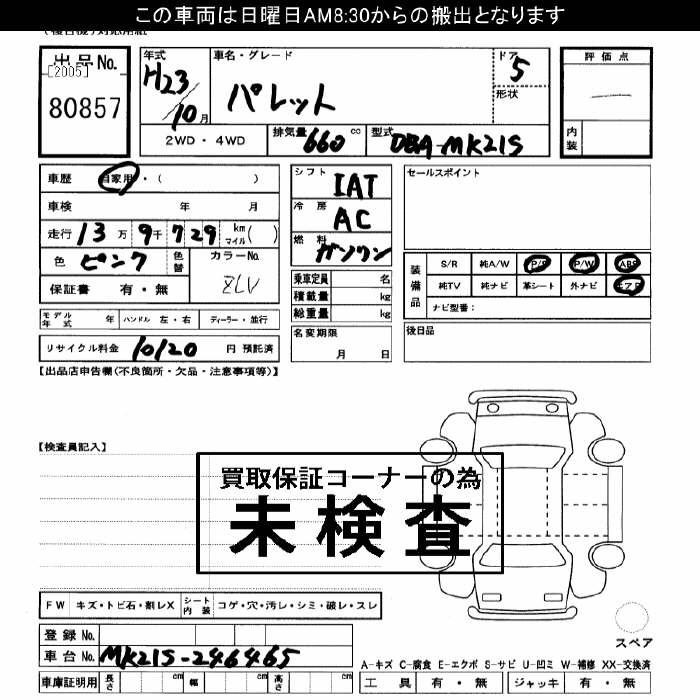 この車両は日曜日AM8:30からの搬出となります
出品No.
[2005]
80857
年式
H23/10月
車名・グレード
パレット
ドア
5
形状
評価点
内装
2WD・4WD
排気量 660 cc
型式 DBA-MK21S
車歴 自家用・( )
車検 年 月
走行 13万9千729 km マイル( )
色 ピンク 色替
カラーNo. ZLV
保証書 有・無
シフト IAT
冷房 AC
燃料 ガソリン
乗車定員 名
積載量 kg
総重量 kg
セールスポイント
装備品
S/R 純A/W P/S P/W ABS
純TV 純ナビ 革シート 外ナビ エアB
ナビ型番:
モデル年式 年 ハンドル 左・右 ディーラー・並行
名変期限 月 日
後日品
リサイクル料金 10120 円 預託済
【出品店申告欄(不良箇所・欠品・注意事項等)】
【検査員記入】
買取保証コーナーの為
未検査
FW キズ・トビ石・割レX シート内装 コゲ・穴・汚レ・シミ・破レ・スレ
スペア
登録No.
車台No. MK21S-246465
A-キズ C-腐食 E-エクボ S-サビ U-凹ミ W-補修 XX-交換済
車庫証明用 長さ cm 幅 cm 高さ cm
工具 有・無 ジャッキ 有・無